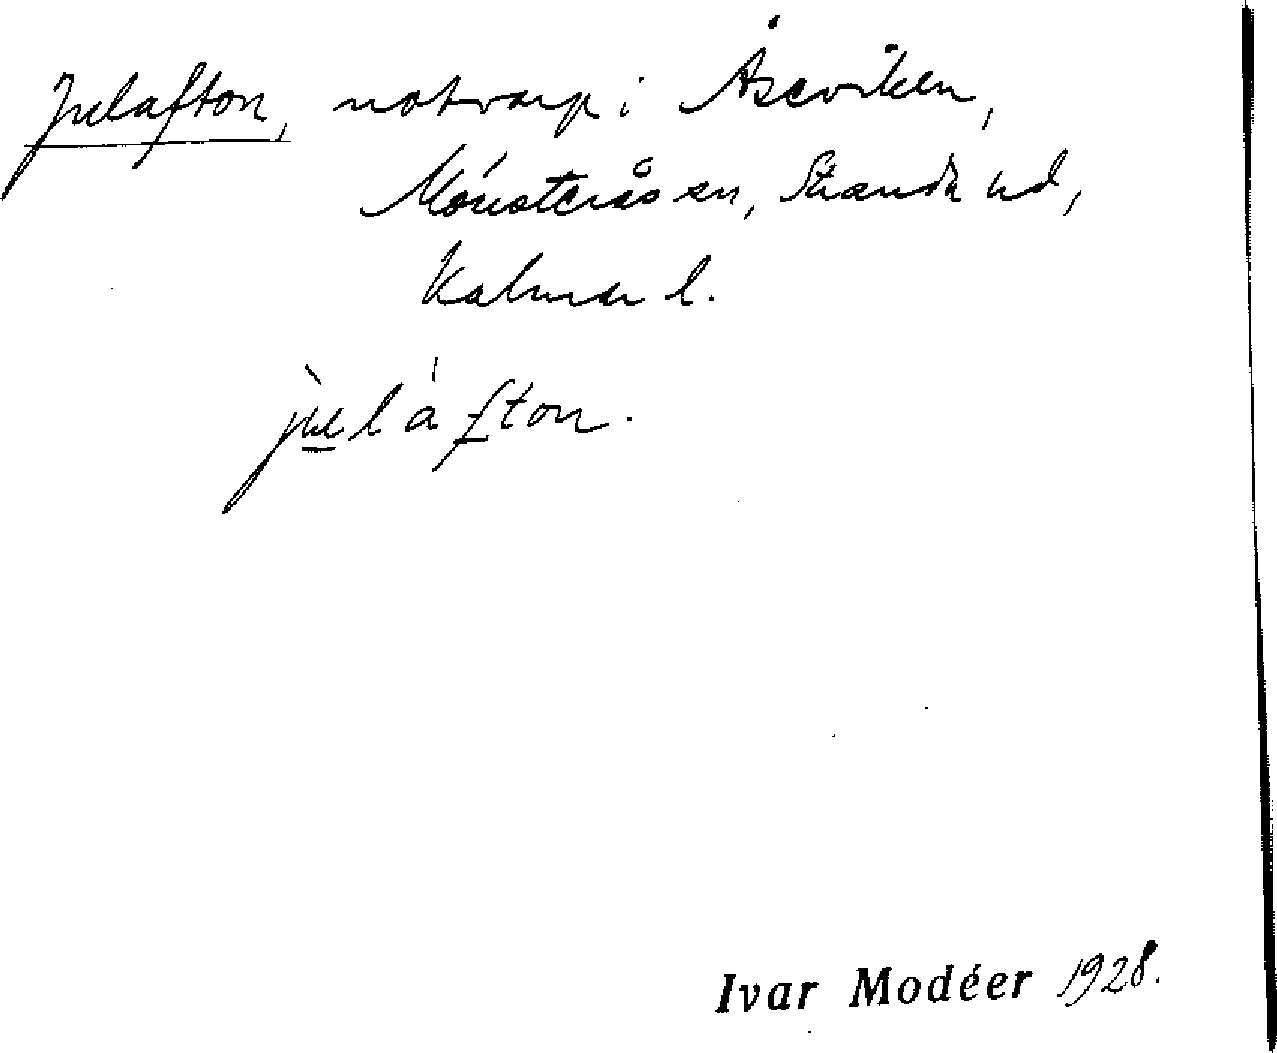 Julafton, notvarp i Åseviken,
Mönsterås sn, Stranda hd,
Kalmar l.
jùláfton.
Ivar Modéer 1928.